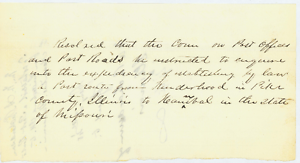 Resolved that the Com on Post Offices
and Post Roads be instructed to enquire
into the expediency of establishing by law
a Post route from Kinderhook in Pike
County, Illinois to Hannibal in the state
of Missouri